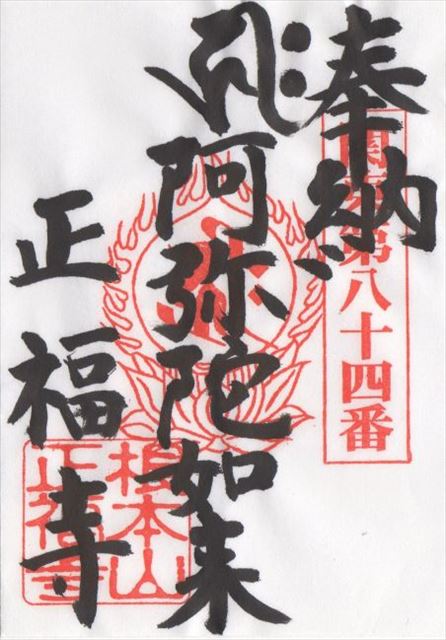 奉納
関東第八十四番
阿弥陀如来
正福寺
根本山
正福寺